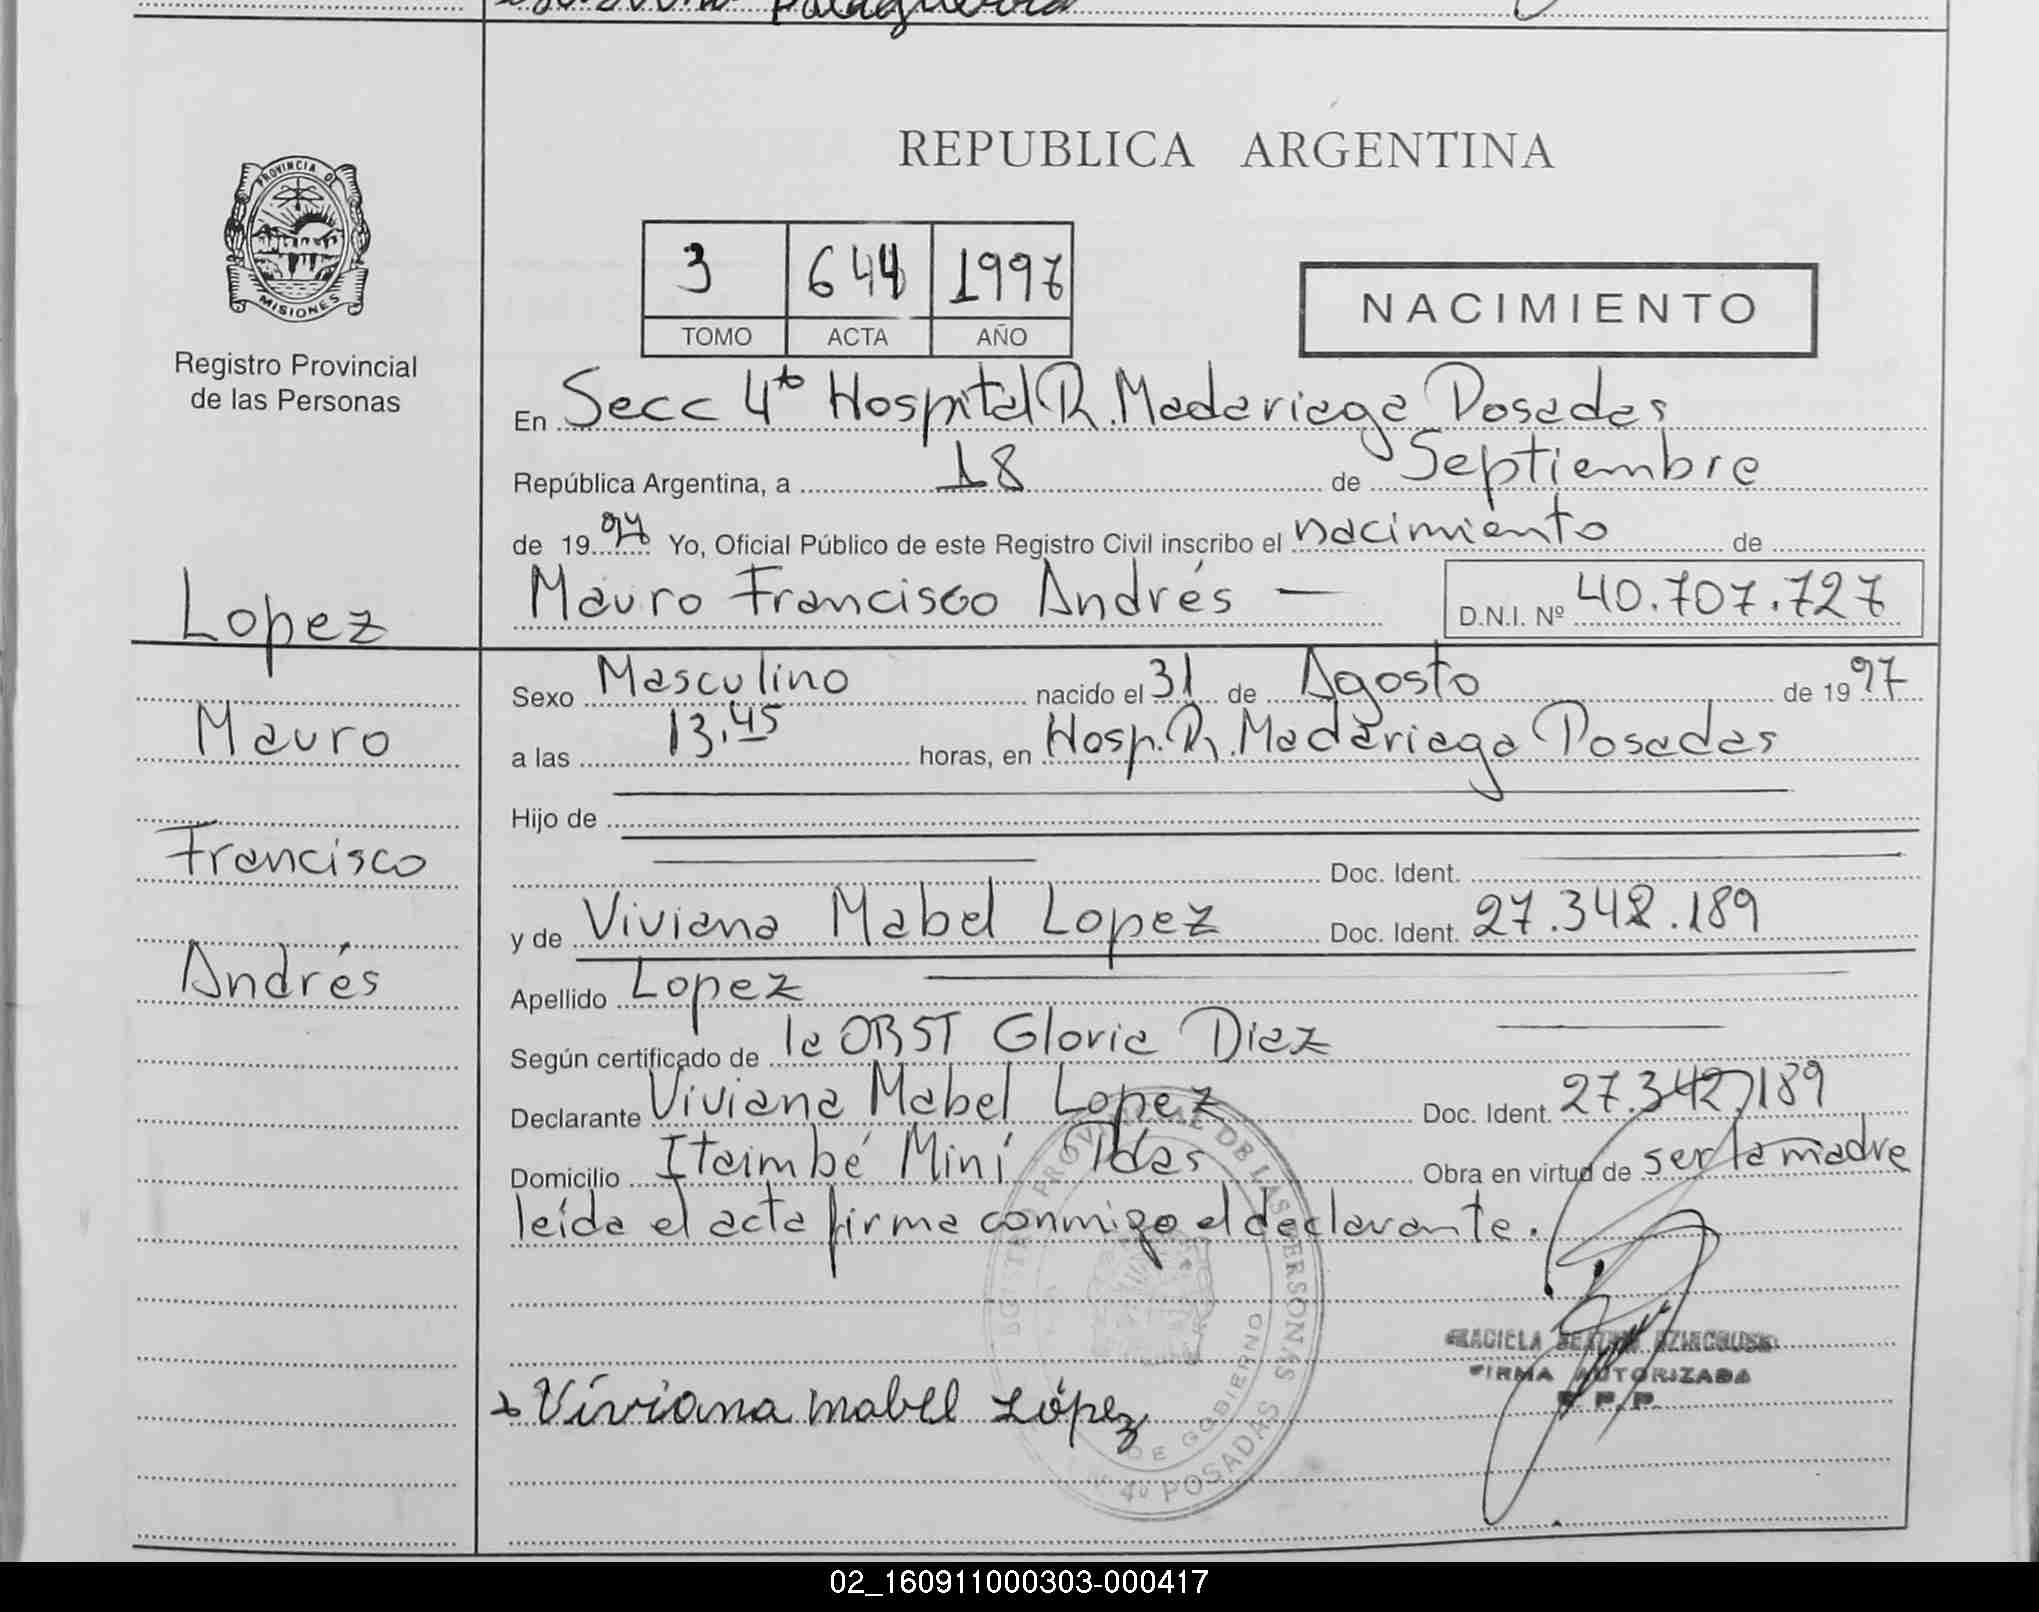 PROVINCIA DE
MISIONES
Registro Provincial
de las Personas
REPUBLICA ARGENTINA
3 644 1997
TOMO ACTA AÑO
NACIMIENTO
En Secc 4ta Hospital R. Madariaga Posadas
República Argentina, a 18 de Septiembre
de 1997 Yo, Oficial Público de este Registro Civil inscribo el nacimiento de
Mauro Francisco Andrés — D.N.I. Nº 40.707.727
Lopez
Mauro
Francisco
Andrés
Sexo Masculino nacido el 31 de Agosto de 1997
a las 13.45 horas, en Hosp. R. Madariaga Posadas
Hijo de
Doc. Ident.
y de Viviana Mabel Lopez Doc. Ident. 27.342.189
Apellido Lopez
Según certificado de la OBST Gloria Diaz
Declarante Viviana Mabel Lopez Doc. Ident. 27.342.189
Domicilio Itaimbé Miní Pdas Obra en virtud de ser la madre
leída el acta firma conmigo el declarante.
GRACIELA
FIRMA AUTORIZADA
R.P.P.
Viviana mabel López
REGISTRO PROVINCIAL DE LAS PERSONAS
DE GOBIERNO
POSADAS
02_160911000303-000417